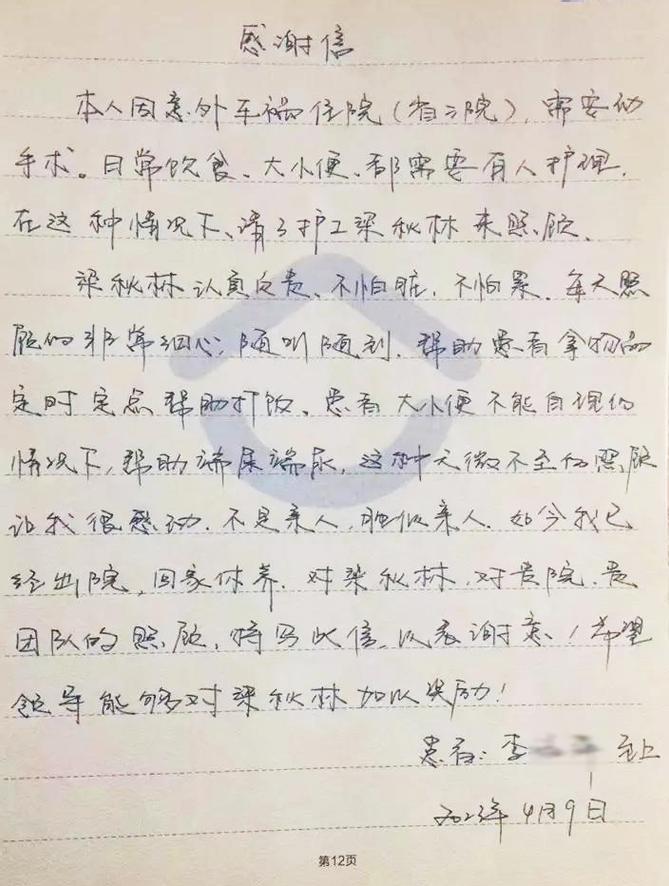 感谢信
本人因意外车祸住院(省二院),需要做
手术。日常饮食、大小便、都需要有人护理.
在这种情况下、请了护工梁秋林来照顾、
梁秋林认真负责、不怕脏,不怕累.每天照
顾的非常细心,随叫随到.帮助患者拿物品
定时定点帮助打饭、患者大小便不能自理的
情况下,帮助端屎端尿,这种无微不至的照顾
让我很感动.不是亲人,胜似亲人.如今我已
经出院,回家休养.对梁秋林,对贵院.贵
团队的照顾,特写此信,以表谢意!希望
领导能够对梁秋林加以奖励!
患者:李 至上
2023年4月9日
第12页